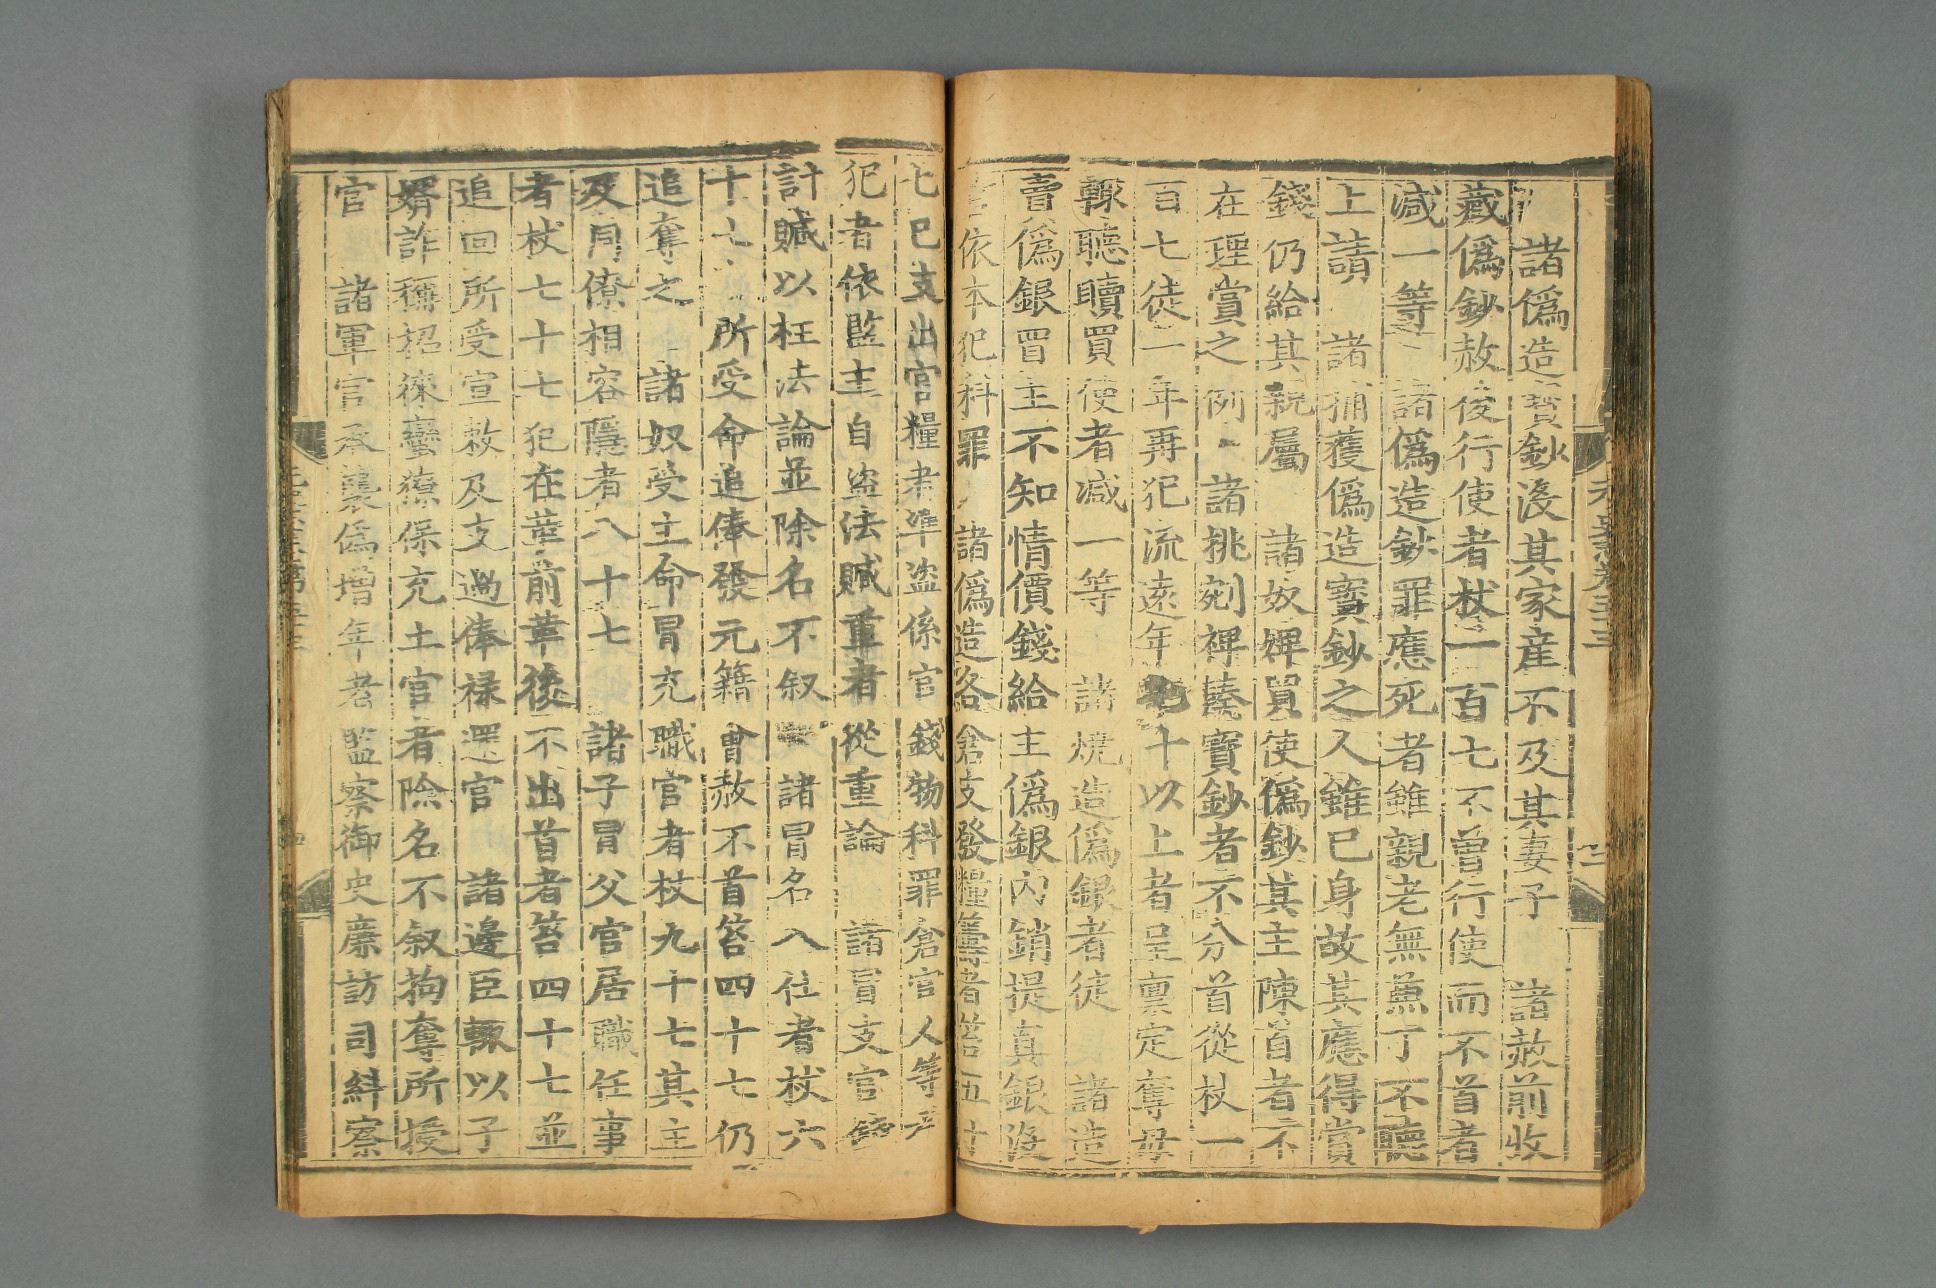 諸偽造寳鈔没其家産不及其妻子　諸赦前收
藏偽鈔赦後行使者杖一百七不曽行使而不首者
减一等　諸偽造鈔罪應死者雖親老無兼丁不聽
上請　諸捕獲偽造寳鈔之人雖已身故其應得賞
錢仍給其親屬　諸奴婢買使偽鈔其主陳首者不
在理賞之例　諸挑剜裨輳寳鈔者不分首從杖一
百七徒一年再犯流遠年七十以上者呈禀定奪毋
輒聽贖買使者减一等　諸燒造偽銀者徒　諸造
賣偽銀買主不知情價錢給主偽銀内銷提真銀没
官依本犯科罪　諸偽造各倉支發糧籌者笞五十
七已支出官糧者準盗係官錢物科罪倉官人等有
犯者依監主自盗法贓重者從重論　諸冐支官錢
計贓以枉法論並除名不叙　諸冐名入仕者杖六
十七所受命追俸發元籍會赦不首笞四十七仍
追奪之　諸奴受主命冐充職官者杖九十七其主
及同僚相容隱者八十七　諸子冐父官居職任事
者杖七十七犯在革前革後不出首者笞四十七並
追回所受宣敕及支過俸禄還官　諸邊臣輒以子
壻詐稱招徠蠻獠保充土官者除名不叙拘奪所授
官　諸軍官承襲偽增年者監察御史廉訪司糾察
元史卷